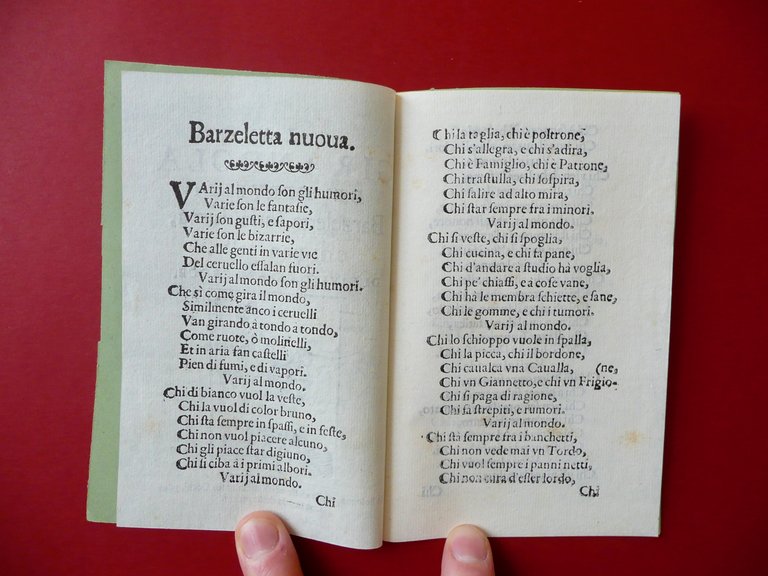 Barzeletta nuoua.
VArij al mondo ſon gli humori,
Varie ſon le fantaſie,
Varij ſon guſti, e ſapori,
Varie ſon le bizarrie,
Che alle genti in varie vie
Del ceruello eſſalan fuori.
Varij al mondo ſon gli humori.
Che sì come gira il mondo,
Similmente anco i ceruelli
Van girando à tondo a tondo,
Come ruote, ò molinelli,
Et in aria fan caſtelli
Pien di fumi, e di vapori.
Varij al mondo.
Chi di bianco vuol la veſte,
Chi la vuol di color bruno,
Chi ſta sempre in ſpaſſi, e in feſte,
Chi non vuol piacere alcuno,
Chi gli piace ſtar digiuno,
Chi ſi ciba à i primi albori.
Varij al mondo.
Chi
Chi la toglia, chi è poltrone,
Chi s'allegra, e chi s'adira,
Chi è Famiglio, chi è Patrone,
Chi traſtulla, chi ſoſpira,
Chi ſalire ad alto mira,
Chi ſtar ſempre fra i minori.
Varij al mondo.
Chi ſi veſte, chi ſi ſpoglia,
Chi cucina, e chi fa pane,
Chi d'andare a ſtudio hà voglia,
Chi pe' chiaſſi, e a coſe vane,
Chi hà le membra ſchiette, e ſane,
Chi le gomme, e chi i tumori.
Varij al mondo.
Chi lo ſchioppo vuole in ſpalla,
Chi la picca, chi il bordone,
Chi caualca vna Caualla, (ne,
Chi vn Giannetto, e chi vn Frigio-
Chi ſi paga di ragione,
Chi fa ſtrepiti, e rumori.
Varij al mondo.
Chi ſtà ſempre fra i banchetti,
Chi non vede mai vn Tordo,
Chi vuol ſempre i panni netti,
Chi non cura d'eſſer lordo,
Chi